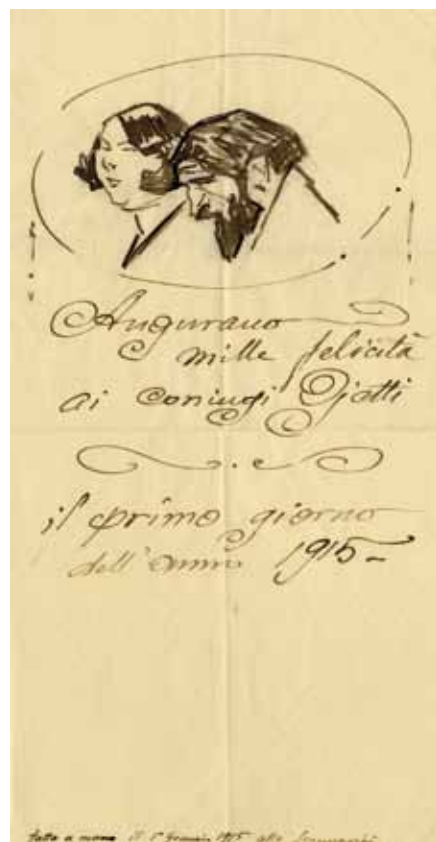 Augurano
mille felicità
ai coniugi Ojetti
il primo giorno
dell'anno 1915-
fatto a mano il 1° Gennaio 1915 alle